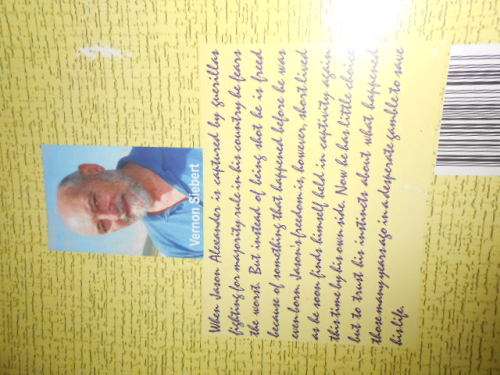 Vernon Siebert
When Jason Alexander is captured by guerillas
fighting for majority rule in his country he fears
the worst. But instead of being shot he is freed
because of something that happened before he was
even born. Jason's freedom is, however, short lived
as he soon finds himself held in captivity again
this time by his own side. Now he has little choice
but to trust his instincts about what happened
those many years ago in a desperate gamble to save
his life.